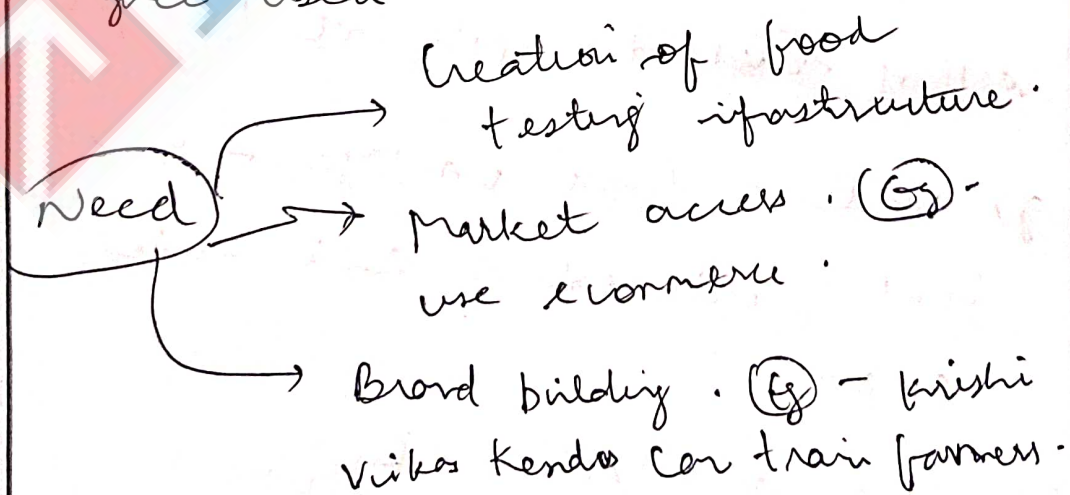 used
Creation of food
testing ifrastructure.
Need
Market access. Eg -
use ecommerce.
Brand building. Eg - Krishi
Vikas Kendas can train farmers.